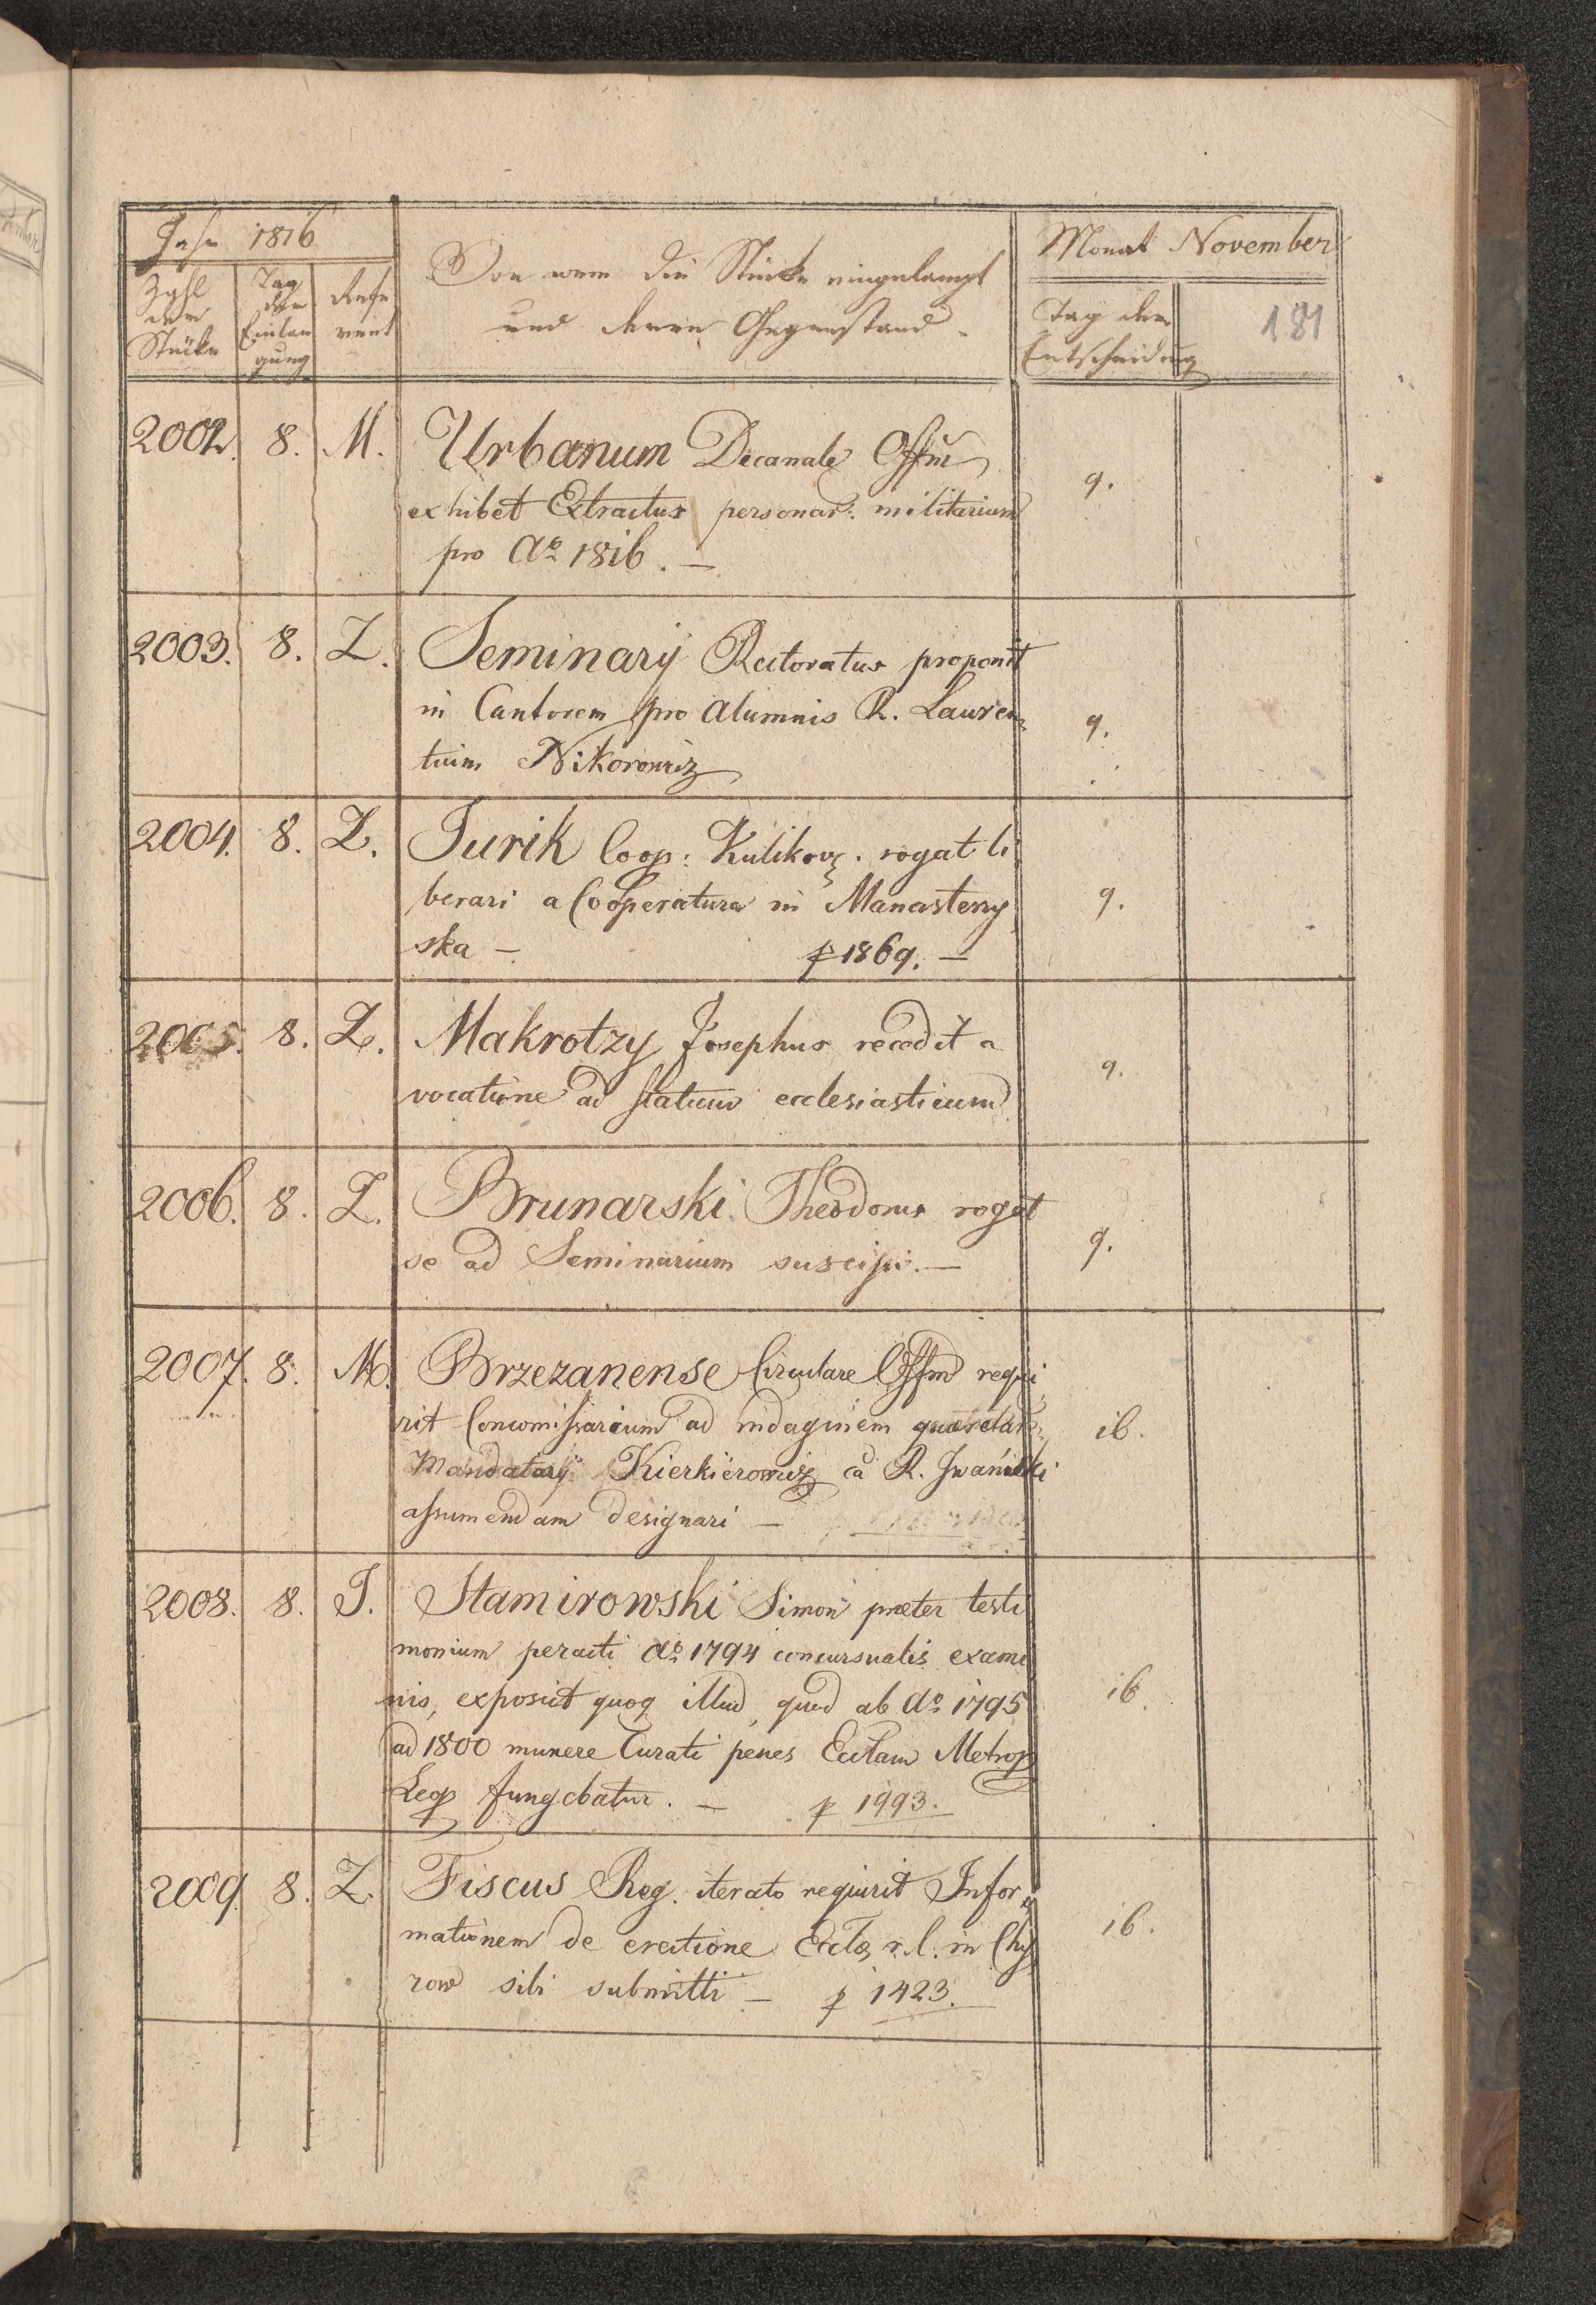 Jahr 1816
Zahl der Stücke
Tag der Einlan gung
Refe rent
Von wem die Stücke eingelangt
und deren Gegenstand.
Monat November
Tag der Entscheidung
181
2002. 8. M. Urbanum Decanale Offm̃
exhibet Extractus personar: militarium
pro Aọ 1816. —
9.
2003. 8. Z. Seminarÿ Rectoratus proponit
in Cantorem pro Alumnis R. Lauren
tium Nikorowicz
9.
2004. 8. Z. Jurik Coop: Kulikov: rogat li
berari a Cooperatura in Manastery
ska — p 1869. —
9.
2005. 8. Z. Makrotzy Josephus recedit a
vocatione ad statum ecclesiasticum
9.
2006. 8. Z. Brunarski Theodorus rogat
se ad Seminarium suscipi. —
9.
2007. 8. M. Brzezanense Circulare Offm requi
rit Concomissarium ad indaginem
Mandatarÿ Kierkierowicz ca R.
assumendam designari —
16.
2008. 8. J. Stamirowski Simon praeter testi
monium peracti Aọ 1794 concursualis exami
nis, exposcit quoq illud, quod ab Aọ 1795
ad 1800 munere Curati penes Ecclam Metrop
Leop fungebatur. — p 1993.
16.
2009. 8. Z. Fiscus Reg. iterato requirit Infor
mationem de erectione Eccla r. l. in Chy
row sibi submitti — p 1423.
16.